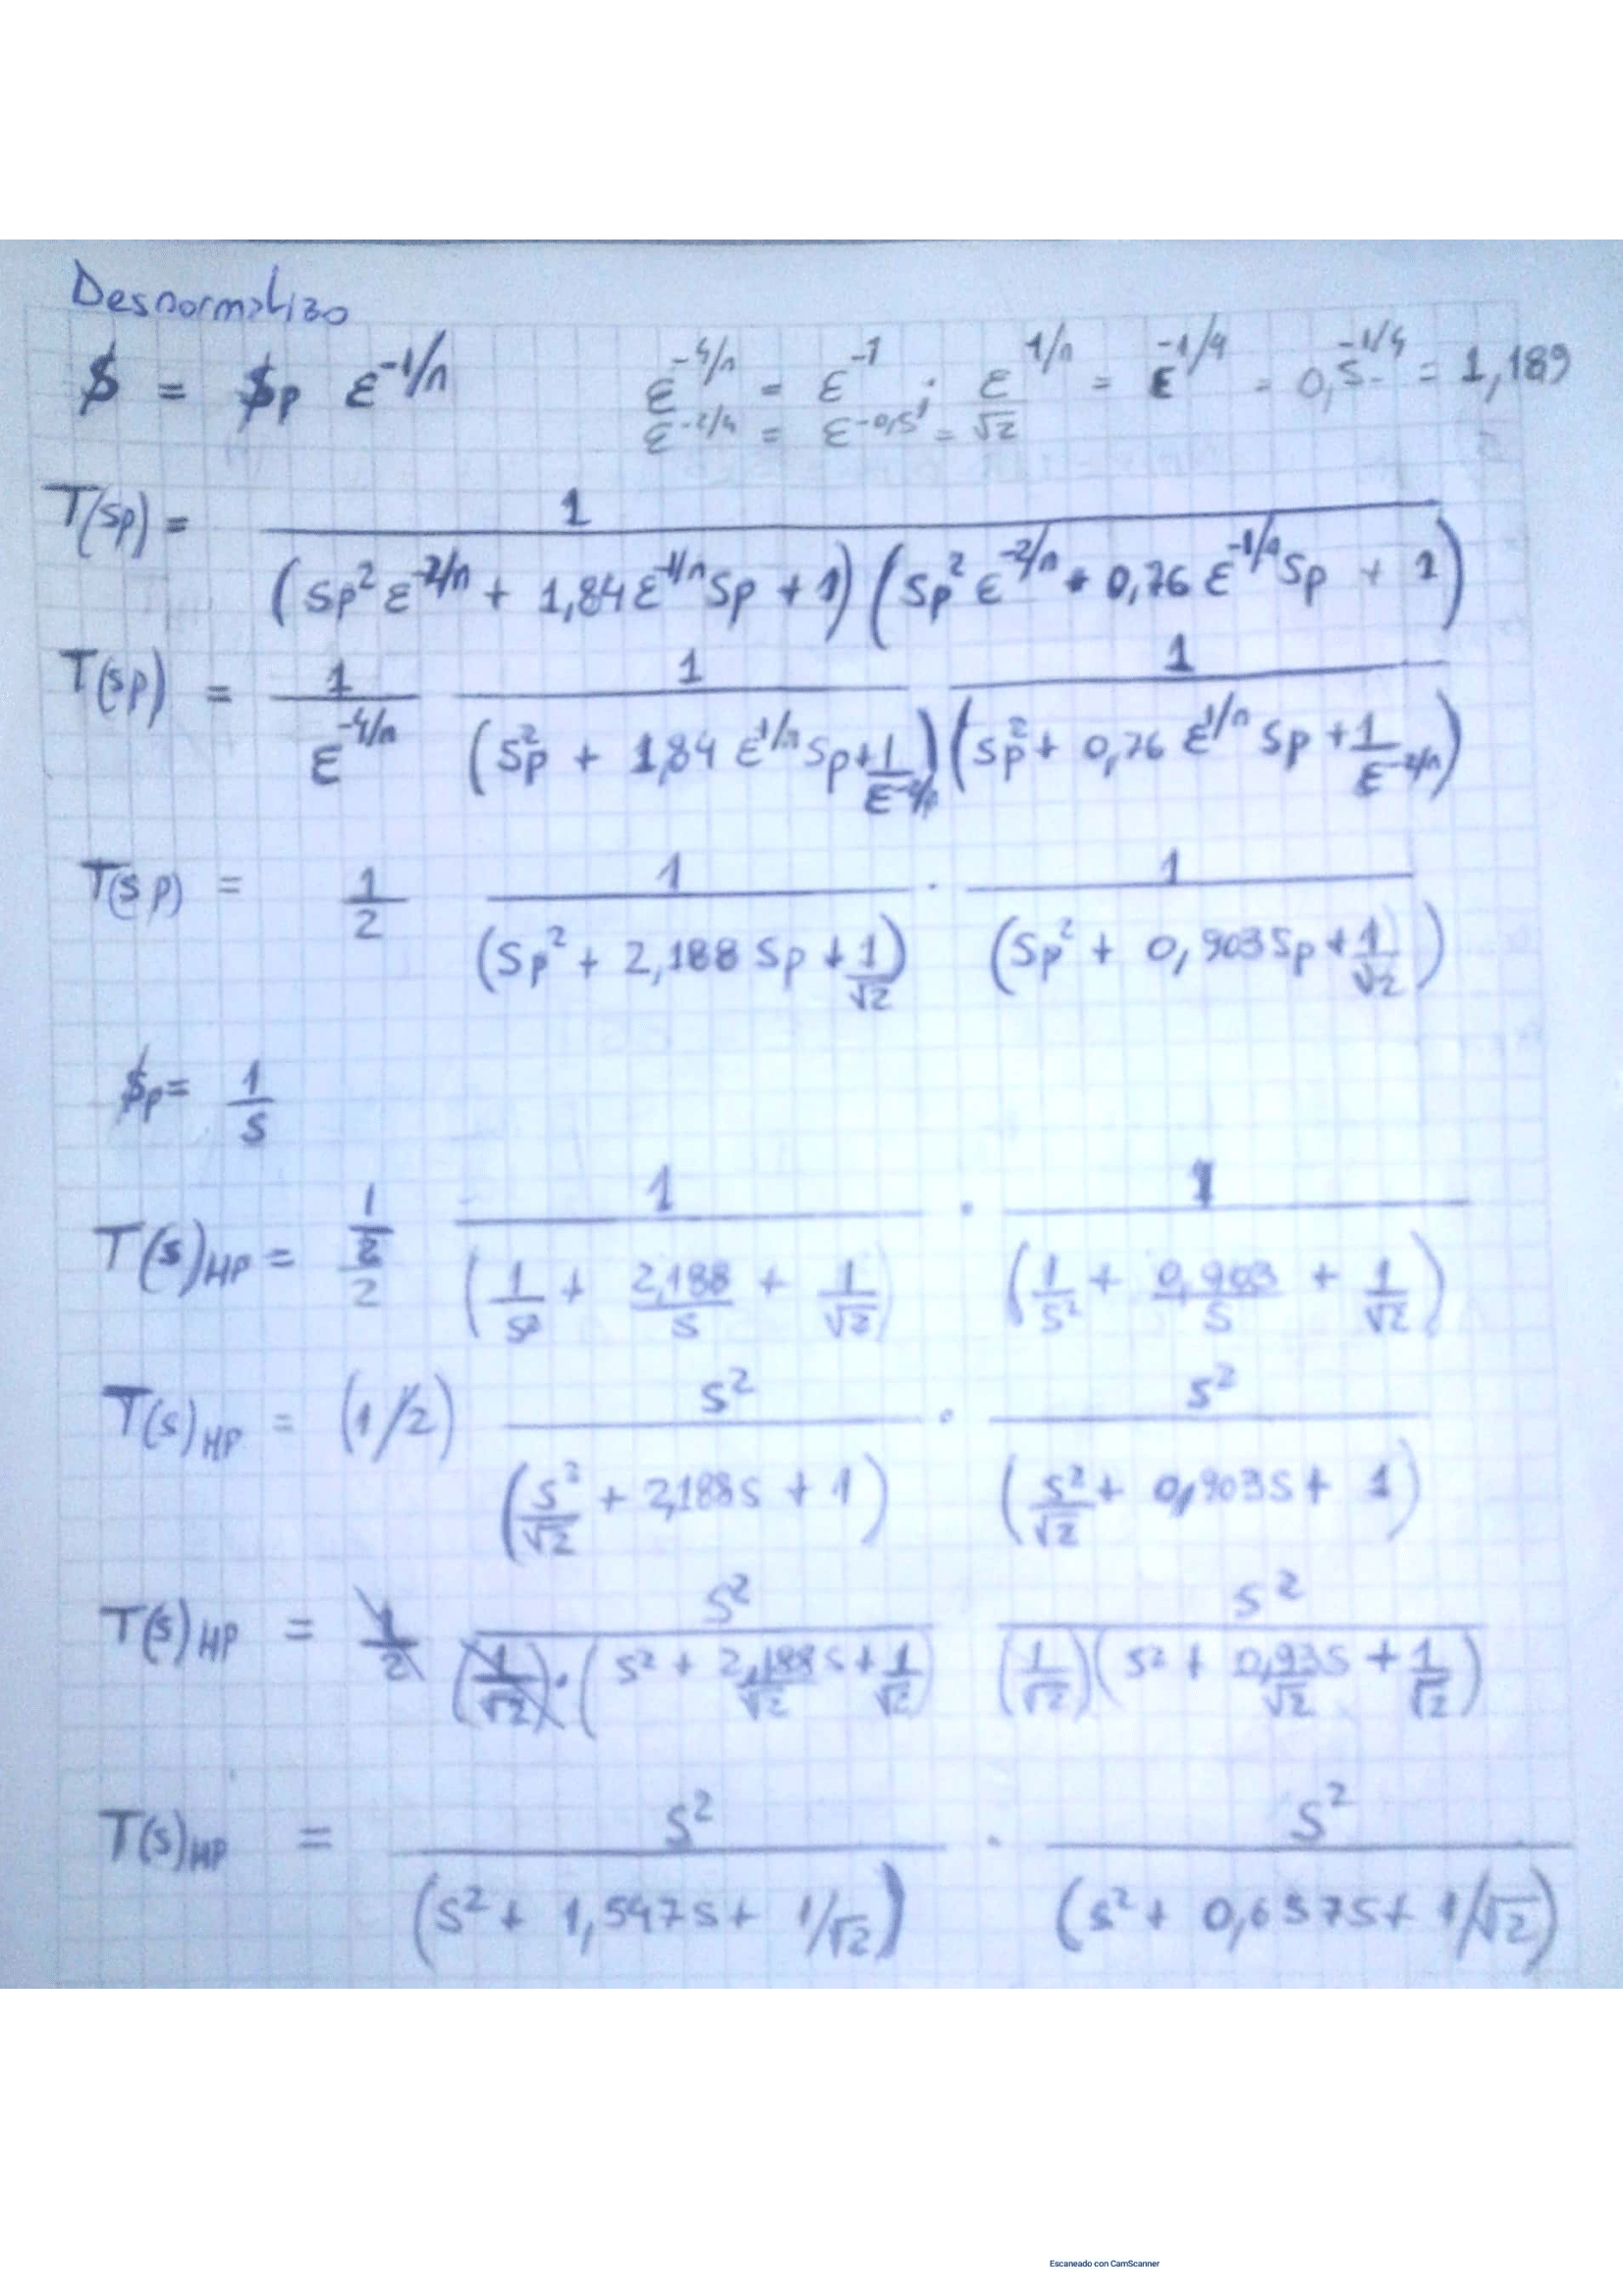 Desnormalizo
$ = $p ε^-1/n    ε^-4/n = ε^-1 ; ε^1/n = ε^-1/4 = 0,5^-1/4 = 1,189
ε^-2/4 = ε^-0,5 = √2
T(sp) = 1 / (Sp² ε^-2/n + 1,84 ε^-1/n Sp + 1) (Sp² ε^-2/n + 0,76 ε^-1/n Sp + 1)
T(sp) = 1/ε^-4/n 1/(Sp² + 1,84 ε^1/n Sp + 1/ε^-2/n) 1/(Sp² + 0,76 ε^1/n Sp + 1/ε^-2/n)
T(sp) = 1/2 1/(Sp² + 2,188 Sp + 1/√2) · 1/(Sp² + 0,903 Sp + 1/√2)
$p = 1/s
T(s)HP = 1/2 1/(1/s² + 2,188/s + 1/√2) · 1/(1/s² + 0,903/s + 1/√2)
T(s)HP = (1/2) s²/(s²/√2 + 2,188s + 1) · s²/(s²/√2 + 0,903s + 1)
T(s)HP = 1/2 s²/(1/√2)·(s² + 2,188s/√2 + 1/√2) s²/(1/√2)(s² + 0,93s/√2 + 1/√2)
T(s)HP = s²/(s² + 1,547s + 1/√2) · s²/(s² + 0,6575s + 1/√2)
Escaneado con CamScanner